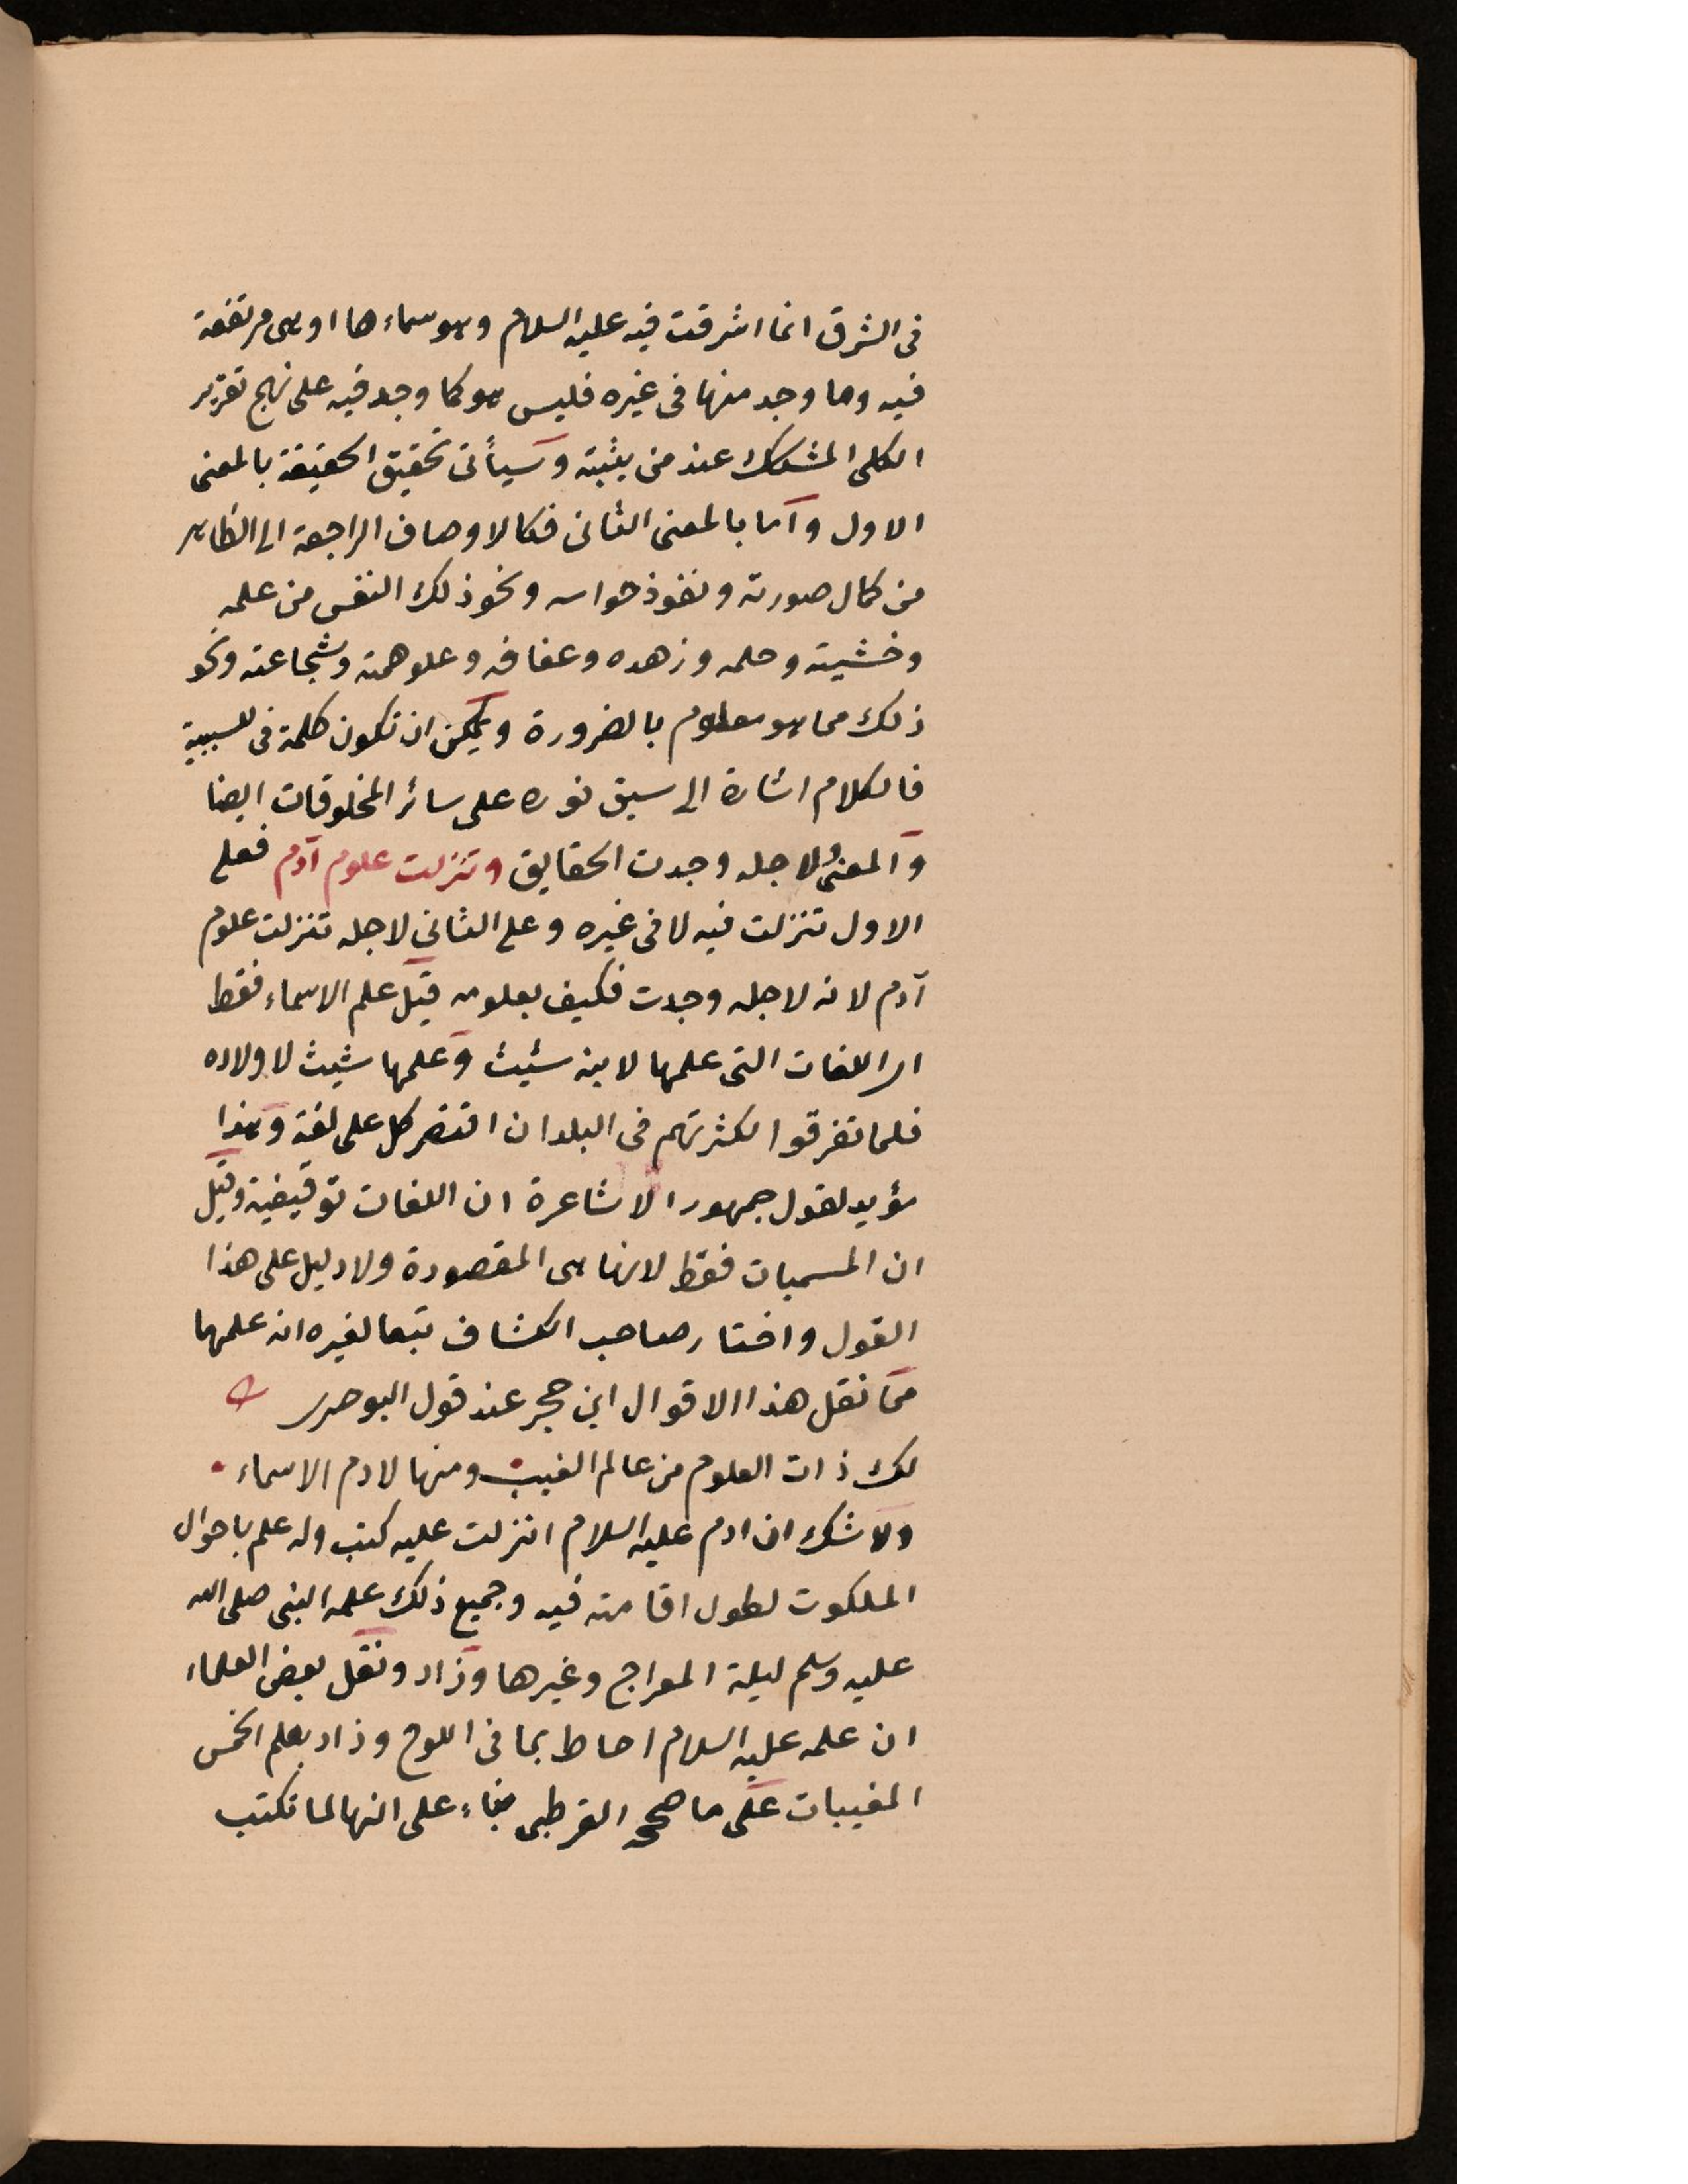 فى الشرق انما اشرقت فيه عليه السلام وهو سماءها او هى مرتفعة
فيه وما وجد منها فى غيره فليس هو كما وجد فيه على نهج تقرير
الكلى المشكك عند من يثبته وسيأتى تحقيق الحقيقة بالمعنى
الاول وآما بالمعنى الثانى فكالاوصاف الراجعة الى الظاهر
من كمال صورته ونفوذ حواسه ونحو ذلك النفس من علمه
وخشيته وحلمه وزهده وعفافه وعلو همته وشجاعته ونحو
ذلك مما هو معلوم بالضرورة ويمكن ان تكون كلمة فى للسببية
فالكلام اشارة الى سبق نوره على سائر المخلوقات ايضا
والمعنى ولاجله وجدت الحقايق وتنزلت علوم آدم فعلى
الاول تنزلت فيه لا فى غيره وعلى الثانى لاجله تنزلت علوم
آدم لانه لاجله وجدت فكيف بعلومه قيل علم الاسماء فقط
اى اللغات التى علمها لابنه شيث وعلمها شيث لاولاده
فلما تفرقوا لكثرتهم فى البلدان اقتصر كل على لغة وهذا
مؤيد لقول جمهور الاشاعرة ان اللغات توقيفية وقيل
ان المسميات فقط لانها هى المقصودة ولا دليل على هذا
القول واختار صاحب الكشاف تبعا لغيره انه علمهما
مما نقل هذا الاقوال ابن حجر عند قول البوصرى
لك ذات العلوم من عالم الغيب ومنها لادم الاسماء
ولا شك ان ادم عليه السلام انزلت عليه كتب وله علم باحوال
الملكوت لطول اقامته فيه وجميع ذلك علمه النبى صلى الله
عليه وسلم ليلة المعراج وغيرها وزاد ونقل بعض العلماء
ان علمه عليه السلام احاط بما فى اللوح وزاد بعلم الخمس
المغيبات على ما صححه القرطبى بناء على انها لما تكتب